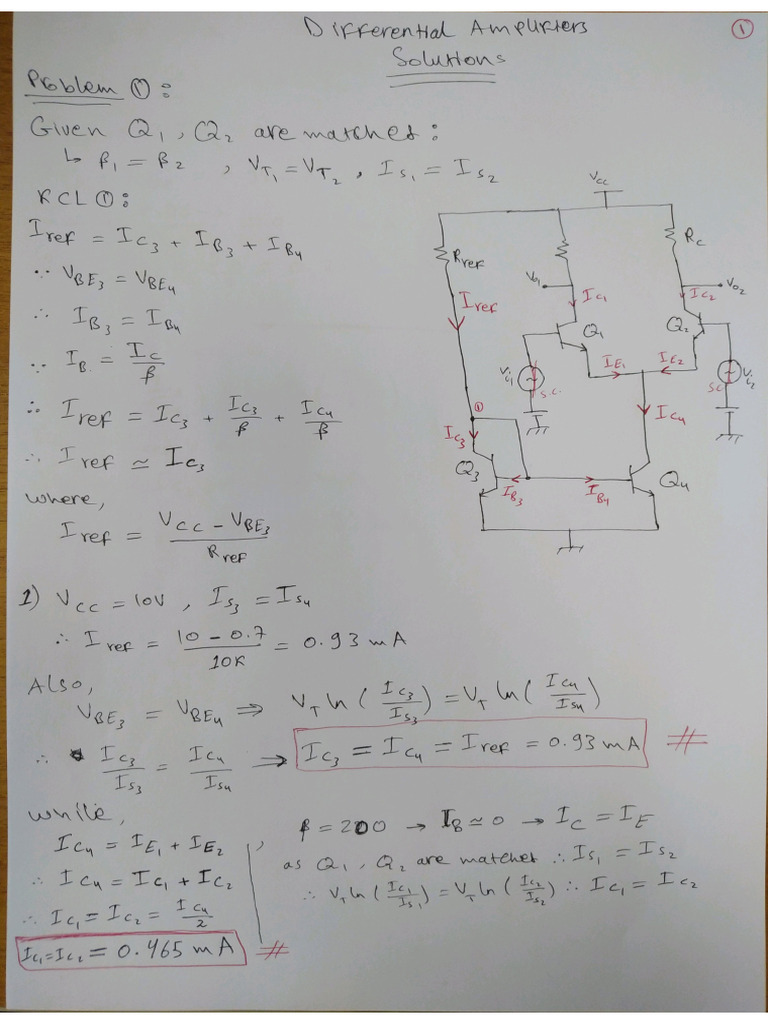 Differential Amplifiers
①
Solutions
Problem ①:
Given Q₁, Q₂ are matches:
↳ β₁ = β₂ , V_T₁ = V_T₂ , I_S₁ = I_S₂
KCL ①:
I_ref = I_C₃ + I_B₃ + I_B₄
∵ V_BE₃ = V_BE₄
∴ I_B₃ = I_B₄
∵ I_B = I_C / β
∴ I_ref = I_C₃ + I_C₃/β + I_C₄/β
∴ I_ref ≃ I_C₃
where,
I_ref = (V_CC - V_BE₃) / R_ref
V_CC
R_ref
R_C
V_O₁
V_O₂
I_ref
I_C₁
I_C₂
Q₁
Q₂
V_i₁
S.C.
I_E₁
I_E₂
V_i₂
S.C
①
I_C₃
I_C₄
Q₃
I_B₃
I_B₄
Q₄
1) V_CC = 10V , I_S₃ = I_S₄
∴ I_ref = (10 - 0.7) / 10K = 0.93 mA
Also,
V_BE₃ = V_BE₄ ⇒ V_T ln (I_C₃/I_S₃) = V_T ln (I_C₄/I_S₄)
∴ I_C₃/I_S₃ = I_C₄/I_S₄ ⇒ I_C₃ = I_C₄ = I_ref = 0.93 mA #
while,
I_C₄ = I_E₁ + I_E₂ ,
∴ I_C₄ = I_C₁ + I_C₂
∴ I_C₁ = I_C₂ = I_C₄/2
I_C₁ = I_C₂ = 0.465 mA #
β = 200 → I_B ≃ 0 → I_C = I_E
as Q₁, Q₂ are matchet ∴ I_S₁ = I_S₂
∴ V_T ln (I_C₁/I_S₁) = V_T ln (I_C₂/I_S₂) ∴ I_C₁ = I_C₂